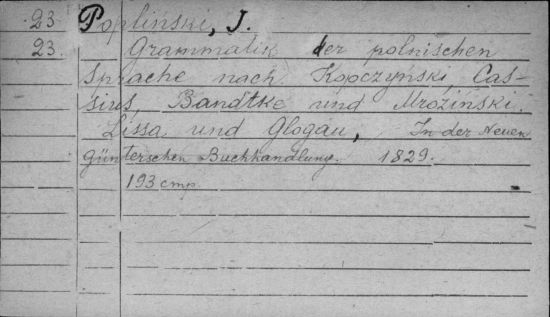 23 Popliński, J.
23. Grammatik der polnischen
Sprache nach Kopczyński, Cas-
sius, Bandtke und Mroziński.
Lissa und Glogau, In der Neuen
Günterschen Buchhandlung. 1829.
193 стр.